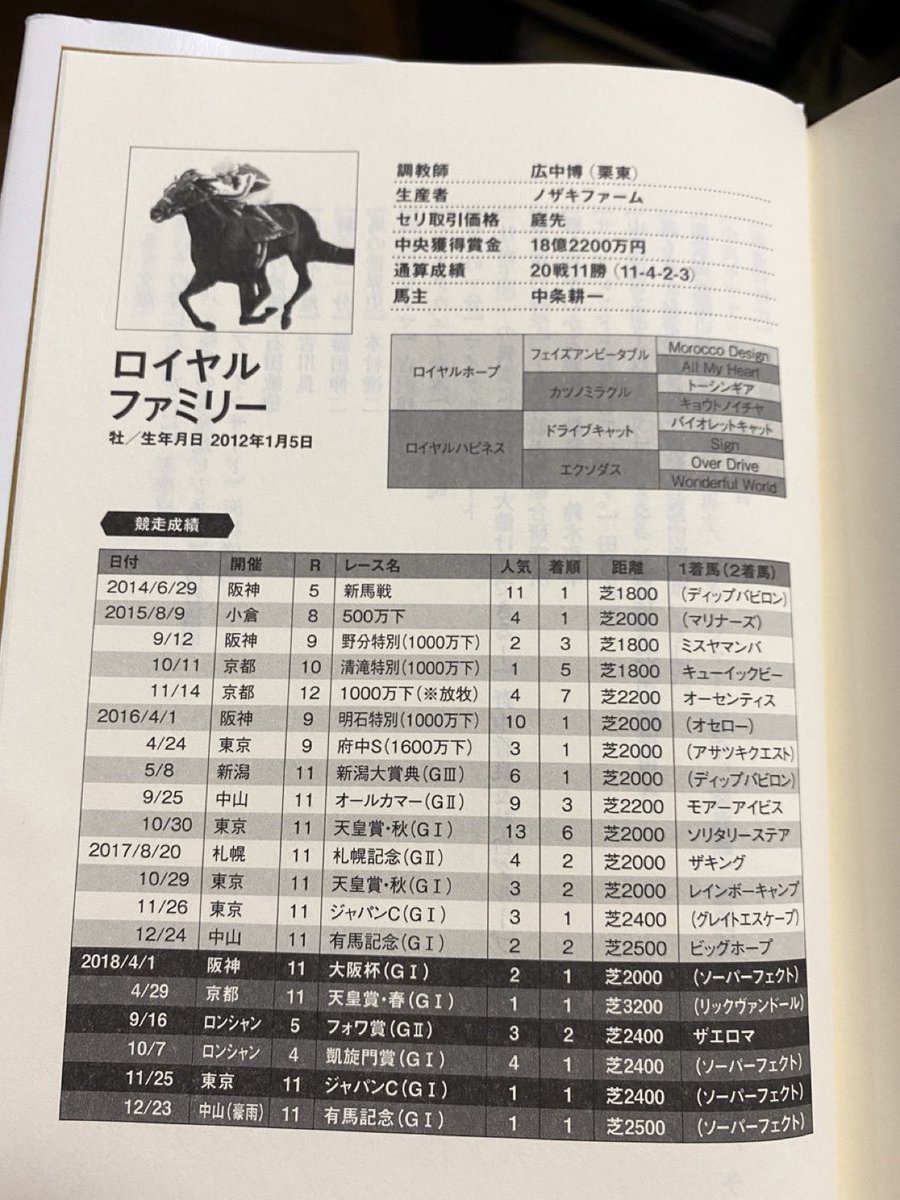 調教師 広中博（栗東）
生産者 ノザキファーム
セリ取引価格 庭先
中央獲得賞金 18億2200万円
通算成績 20戦11勝（11-4-2-3）
馬主 中条耕一
ロイヤル
ファミリー
牡／生年月日 2012年1月5日
ロイヤルホープ フェイズアンビータブル Morocco Design
All My Heart
カツノミラクル トーシンギア
キョウトノイチヤ
ロイヤルハピネス ドライブキャット バイオレットキャット
Sign
エクソダス Over Drive
Wonderful World
競走成績
日付 開催 R レース名 人気 着順 距離 1着馬（2着馬）
2014/6/29 阪神 5 新馬戦 11 1 芝1800 （ディップバビロン）
2015/8/9 小倉 8 500万下 4 1 芝2000 （マリナーズ）
9/12 阪神 9 野分特別（1000万下） 2 3 芝1800 ミスヤマンバ
10/11 京都 10 清滝特別（1000万下） 1 5 芝1800 キューイックビー
11/14 京都 12 1000万下（※放牧） 4 7 芝2200 オーセンティス
2016/4/1 阪神 9 明石特別（1000万下） 10 1 芝2000 （オセロー）
4/24 東京 9 府中S（1600万下） 3 1 芝2000 （アサツキクエスト）
5/8 新潟 11 新潟大賞典（GⅢ） 6 1 芝2000 （ディップバビロン）
9/25 中山 11 オールカマー（GⅡ） 9 3 芝2200 モアーアイビス
10/30 東京 11 天皇賞・秋（GⅠ） 13 6 芝2000 ソリタリーステア
2017/8/20 札幌 11 札幌記念（GⅡ） 4 2 芝2000 ザキング
10/29 東京 11 天皇賞・秋（GⅠ） 3 2 芝2000 レインボーキャンプ
11/26 東京 11 ジャパンC（GⅠ） 3 1 芝2400 （グレイトエスケープ）
12/24 中山 11 有馬記念（GⅠ） 2 2 芝2500 ビッグホープ
2018/4/1 阪神 11 大阪杯（GⅠ） 2 1 芝2000 （ソーパーフェクト）
4/29 京都 11 天皇賞・春（GⅠ） 1 1 芝3200 （リックヴァンドール）
9/16 ロンシャン 5 フォワ賞（GⅡ） 3 2 芝2400 ザエロマ
10/7 ロンシャン 4 凱旋門賞（GⅠ） 4 1 芝2400 （ソーパーフェクト）
11/25 東京 11 ジャパンC（GⅠ） 1 1 芝2400 （ソーパーフェクト）
12/23 中山（豪雨） 11 有馬記念（GⅠ） 1 1 芝2500 （ソーパーフェクト）